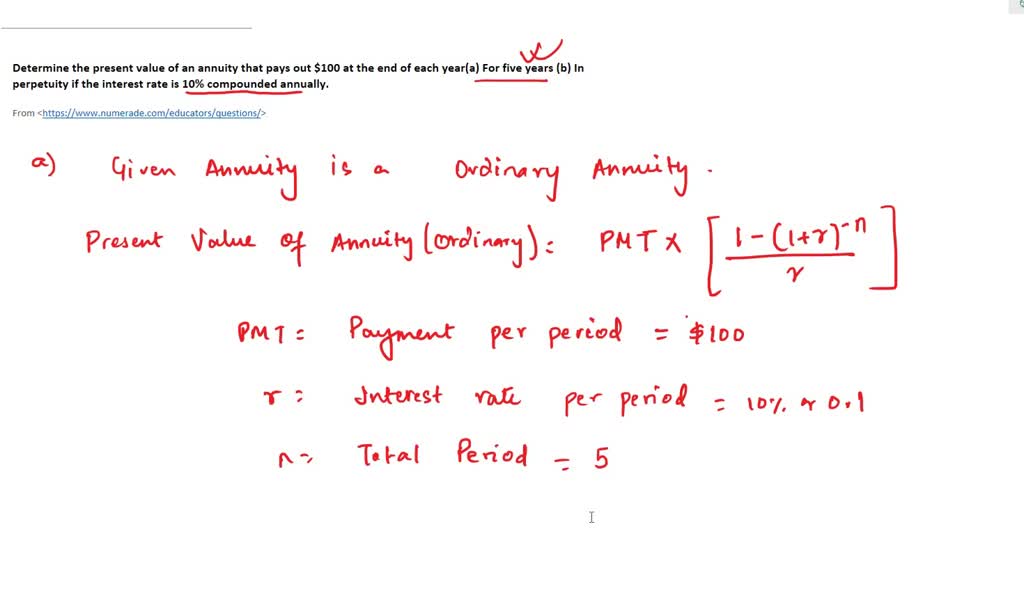 Determine the present value of an annuity that pays out $100 at the end of each year(a) For five years (b) In
perpetuity if the interest rate is 10% compounded annually.
From <https://www.numerade.com/educators/questions/>
a) Given Annuity is a Ordinary Annuity.
Present Value of Annuity (Ordinary) = PMT × [ 1-(1+r)^-n / r ]
PMT = Payment per period = $100
r = Interest rate per period = 10% or 0.1
n = Total Period = 5